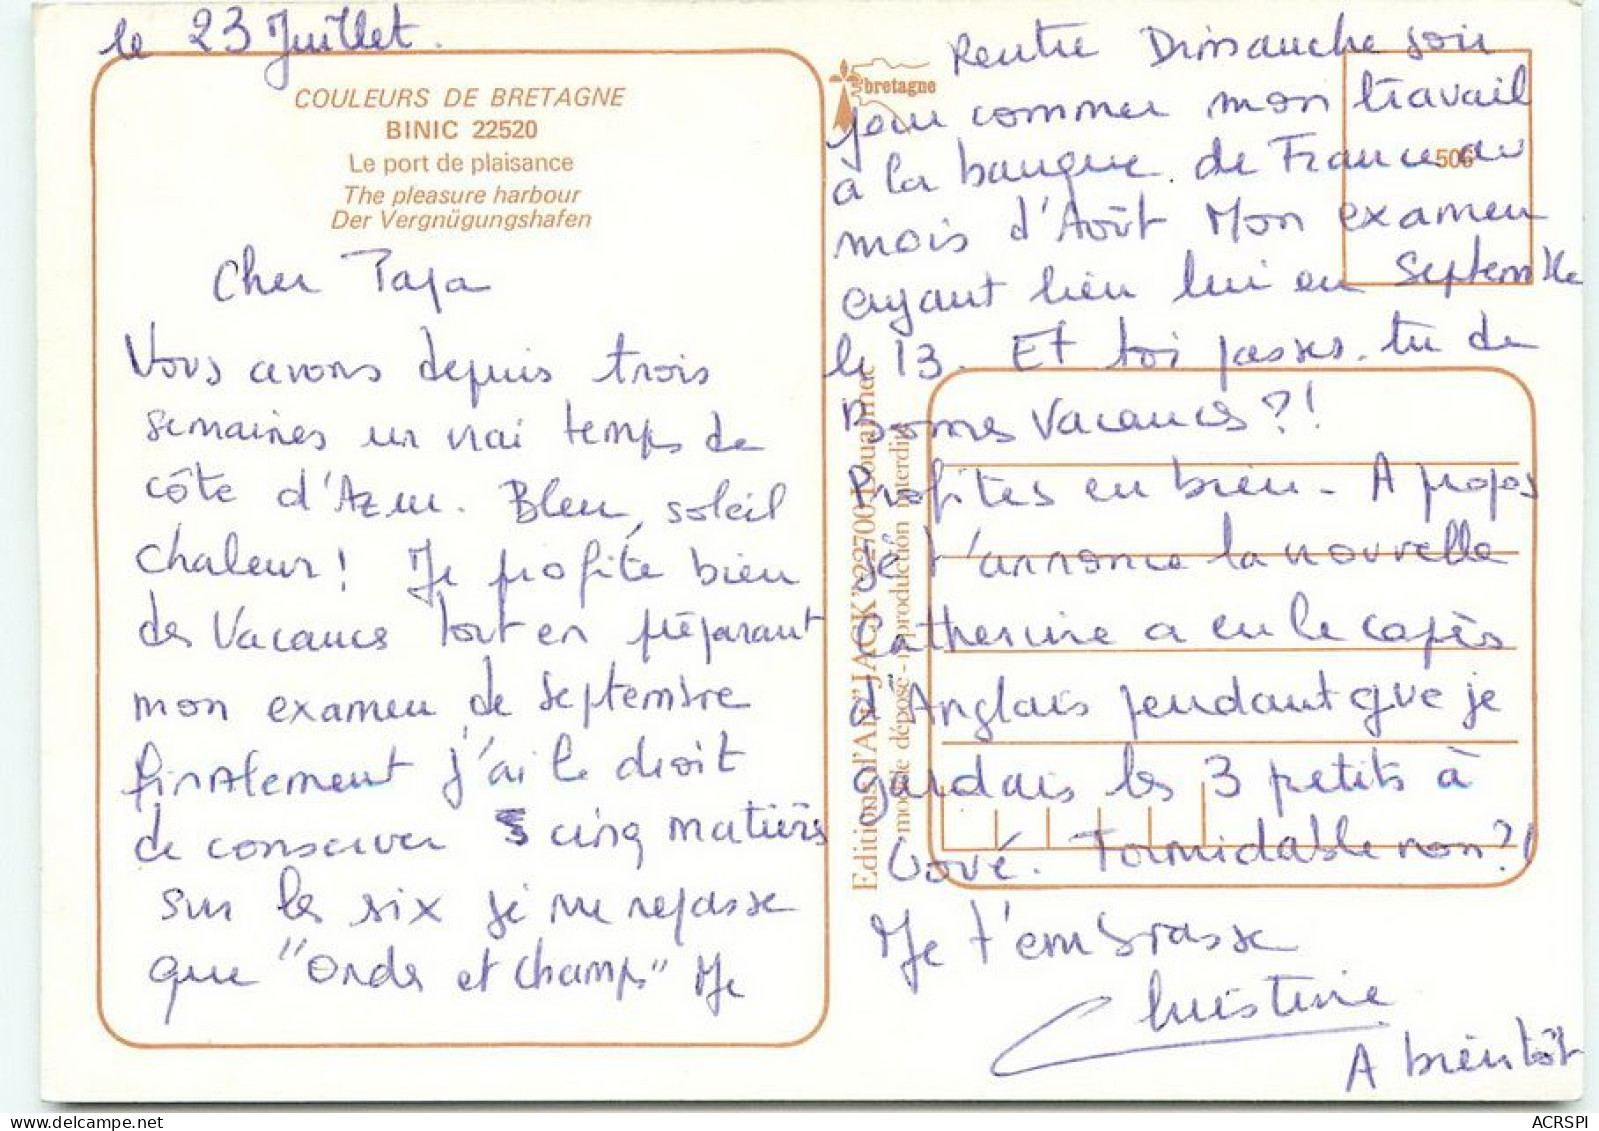 le 23 Juillet.
COULEURS DE BRETAGNE
BINIC 22520
Le port de plaisance
The pleasure harbour
Der Vergnügungshafen
Cher Papa
Nous avons depuis trois
semaines un vrai temps de
côte d'Azur. Bleu, soleil
chaleur! Je profite bien
des Vacances tout en préparant
mon examen de Septembre
finalement j'ai le droit
de conserver cinq matières
sur les six je ne repasse
que "Onde et champs" Je
bretagne
506
Editions d'Art "JACK" 22700 Louannec
modèle déposé - reproduction interdite
Rentre Dimanche soir
pour commencer mon travail
à la banque de France au
mois d'Août Mon examen
ayant lieu lui en Septembre
le 13. Et toi passes-tu de
Bonnes Vacances?!
Profites en bien - A propos
Je t'annonce la nouvelle
Catherine a eu le capès
d'Anglais pendant que je
gardais les 3 petits à
Formidable non?!
Je t'embrasse
Christine
A bientôt
ACRSPI